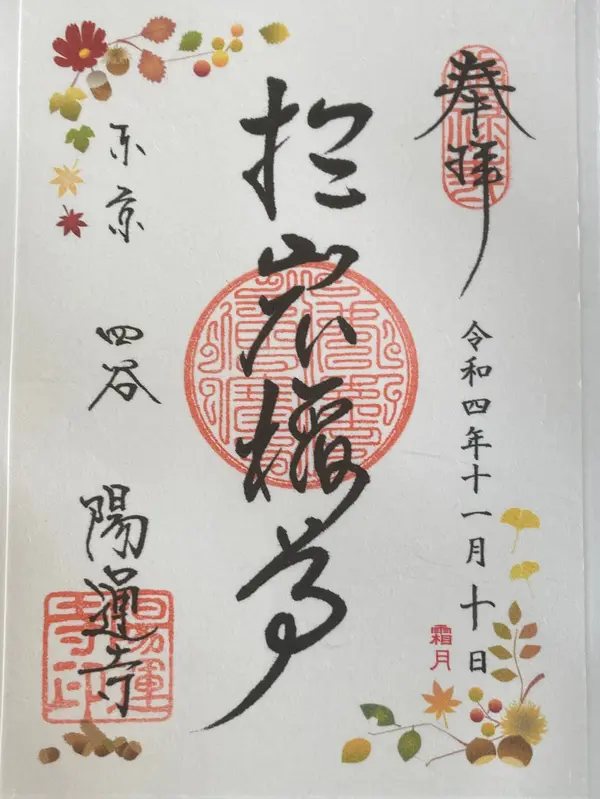 奉拝
令和四年十一月十日
霜月
於岩尊
東京
四谷
陽運寺
陽運寺印